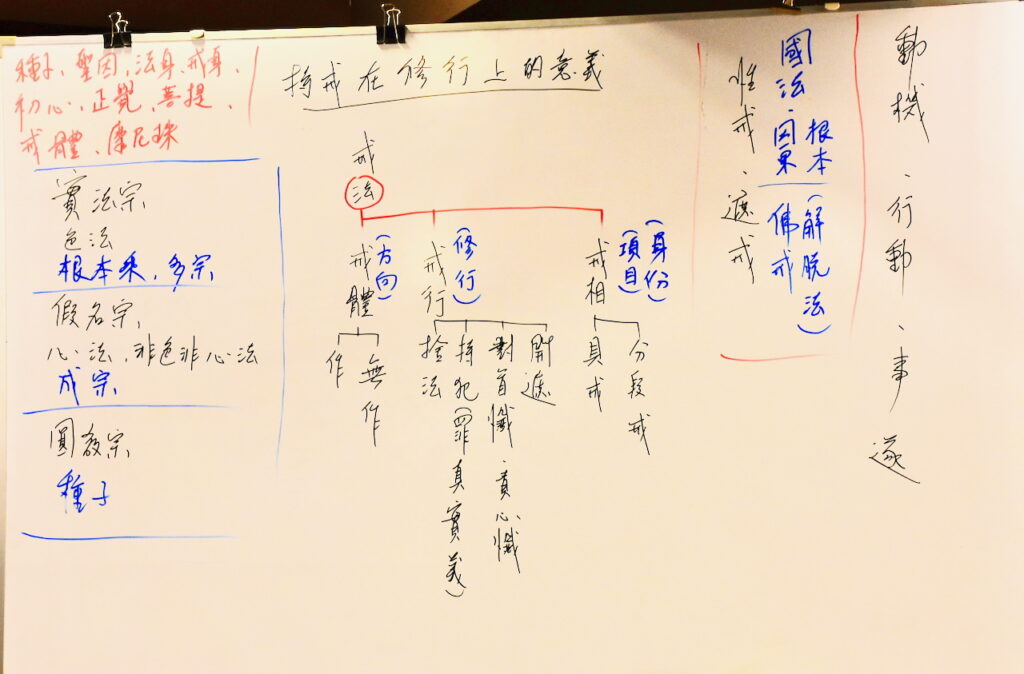 種子、聖因、法身、戒身、
初心、正覺、菩提、
戒體、摩尼珠
實法宗
色法
根本乘、多宗
假名宗、
心法、非色非心法
成宗、
圓教宗、
種子
持戒在修行上的意義
戒法
戒體(方向)
作
無作
戒行(修行)
捨法
持犯(罪真實義)
對首懺、責心懺
開遮
戒相(項目)(身份)
具戒
分段戒
國法、因果
根本
佛戒
(解脫法)
性戒、遮戒
動機、行動、事 遂